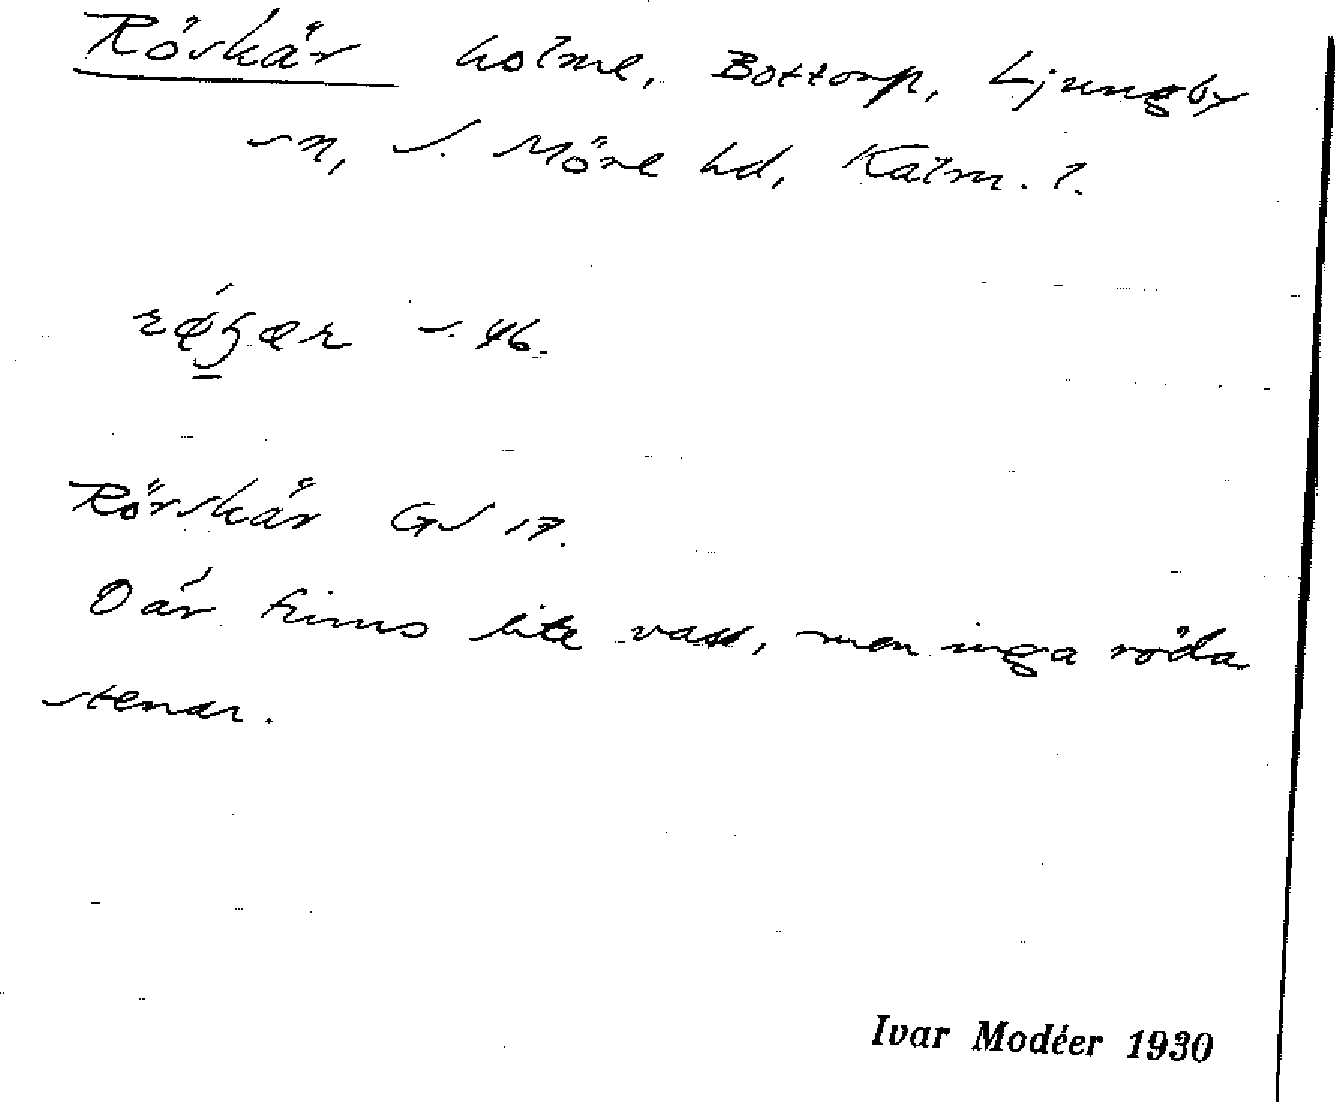 Röskär holme, Bottorp, Ljungby
sn, S. Möre hd, Kalm. l.
s. 46.
Rörskär GS 17.
Där finns lite vass, men inga röda
stenar.
Ivar Modéer 1930